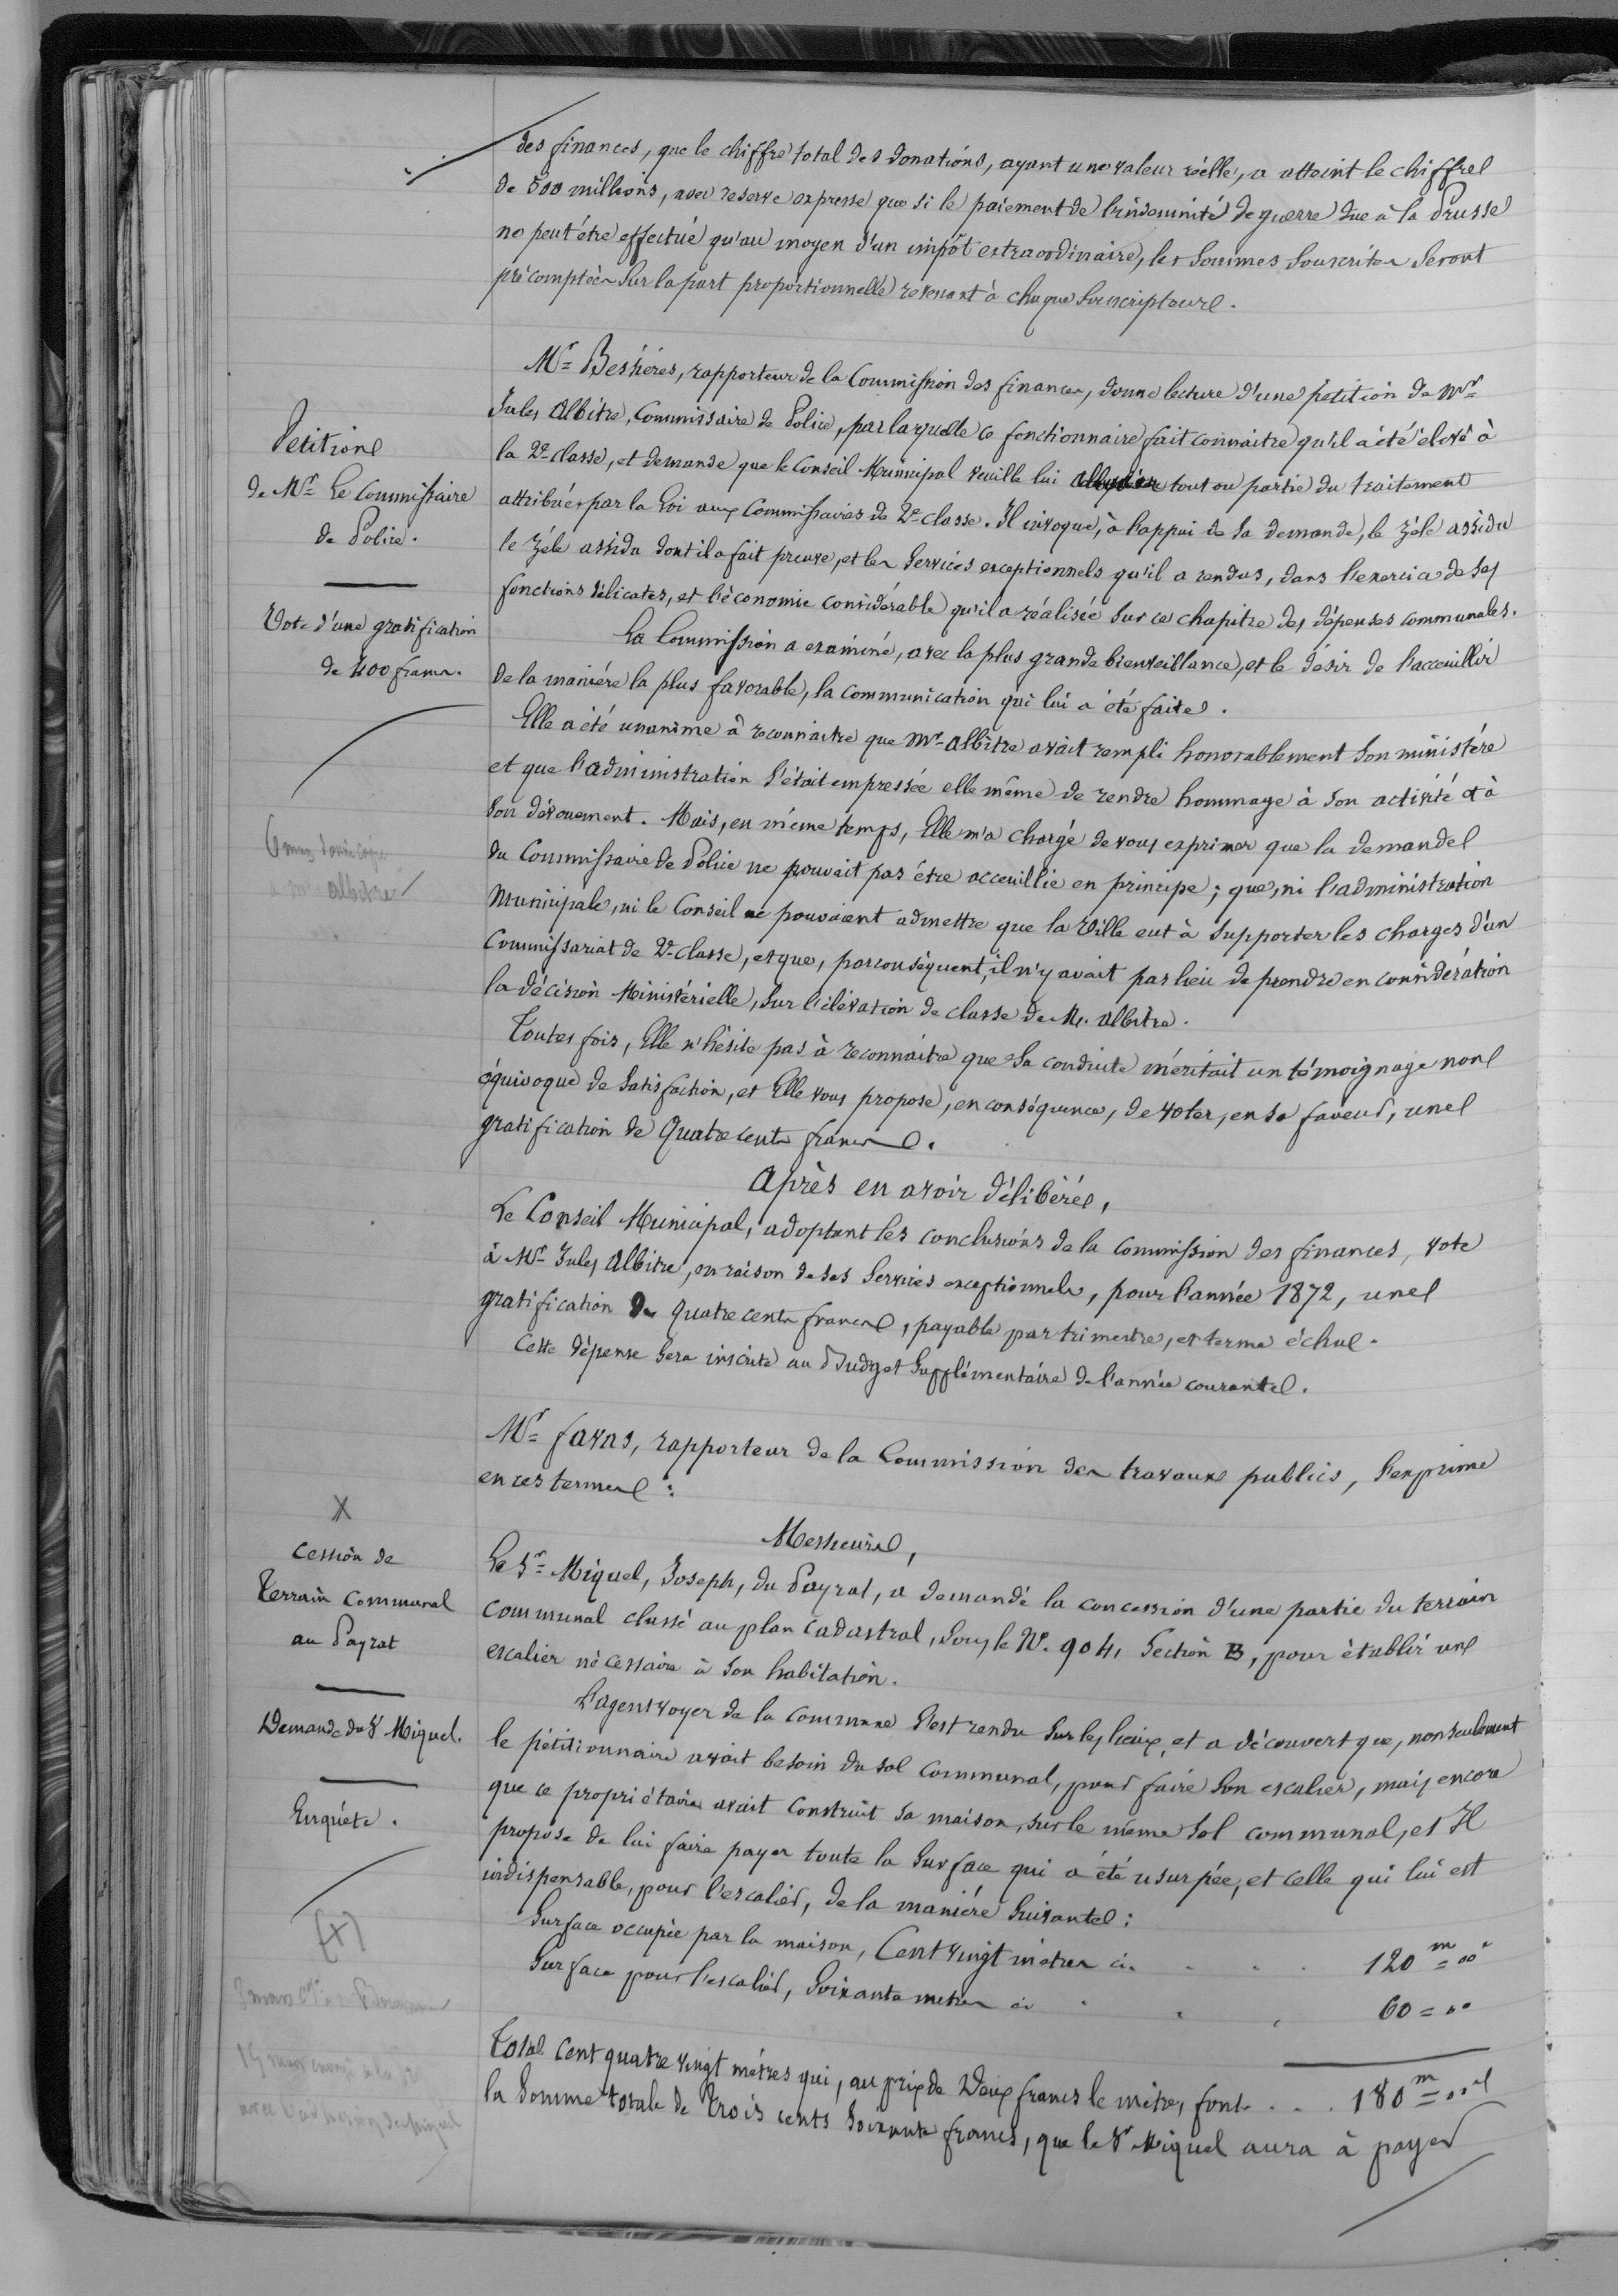 des finances, que le chiffre total des donations, ayant une valeur réelle, a atteint le chiffre
de 500 millions, avec reserve expresse que si le paiement de l'indemnité de guerre due à la Prusse
ne peut être effectué qu'au moyen d'un impôt extraordinaire, les sommes souscrites seront
précomptées sur la part proportionnelle revenant à chaque souscripteur.
Petition
de Mr Le Commissaire
de Police.
Vote d'une gratification
de 400 francs.
Mr Bessières, rapporteur de la Commission des finances, donne lecture d'une petition de Mr
Jules Albitre, Commissaire de Police, par laquelle ce fonctionnaire fait connaitre qu'il a été élevé à
la 2e classe, et demande que le Conseil Municipal veuille lui tout ou partie du traitement
attribué par la Loi aux Commissaires de 2e classe. Il invoque, à l'appui de sa demande, le zèle assidu
le zèle assidu dont il a fait preuve, et les services exceptionnels qu'il a rendus, dans l'exercice de ses
fonctions délicates, et l'économie considérable qu'il a réalisée sur ce chapitre des dépenses communales.
La Commission a examiné, avec la plus grande bienveillance, et le désir de l'acceuillir
de la manière la plus favorable, la communication qui lui a été faite.
Elle a été unanime à reconnaitre que Mr Albitre avait rempli honorablement son ministère
et que l'administration s'était empressée elle même de rendre hommage à son activité et à
son dévouement. Mais, en même temps, Elle m'a chargé de vous exprimer que la demande
du Commissaire de Police ne pouvait pas être acceuillie en principe; que, ni l'administration
Municipale, ni le Conseil ne pouvaient admettre que la Ville eut à supporter les charges d'un
Commissariat de 2e classe, et que, par conséquent, il n'y avait pas lieu de prendre en considération
la décision Ministérielle, sur l'élévation de classe de M. Albitre.
Toutes fois, Elle n'hésite pas à reconnaitre que sa conduite méritait un témoignage non
équivoque de satisfaction, et Elle vous propose, en conséquence, de voter, en sa faveur, une
gratification de Quatre cents francs.
albitre
Après en avoir délibéré,
Le Conseil Municipal, adoptant les conclusions de la Commission des finances, vote
à Mr Jules Albitre, en raison de ses services exceptionnels, pour l'année 1872, une
gratification de quatre cents francs, payable par trimestre, et terme échu.
Cette dépense sera inscrite au Budget supplémentaire de l'année courante.
Mr favas, rapporteur de la Commission des travaux publics, s'exprime
en ces termes :
X
Cession de
Terrain Communal
au Payrat
Demande du Sr Miquel.
Enquête.
(+)
Messieurs,
Le Sr Miquel, Joseph, du Payrat, a demandé la concession d'une partie du terrain
communal classé au plan cadastral, sous le No. 904, Section B, pour établir un
escalier nécessaire à son habitation.
L'agent voyer de la commune s'est rendu sur les lieux, et a découvert que, non seulement
le pétitionnaire avait besoin du sol communal, pour faire son escalier, mais encore
que ce propriétaire avait construit sa maison, sur le même sol communal, et Il
propose de lui faire payer toute la surface qui a été usurpée, et celle qui lui est
indispensable, pour l'escalier, de la manière suivante :
Surface occupée par la maison, Cent vingt mètres ci . . . 120 m = 00
Surface pour l'escalier, soixante mètres ci . . . 60 = 00
Total cent quatre vingt mètres qui, au prix de Deux francs le mètre, font . . . 180 m = 00
la somme totale de trois cents soixante francs, que le Sr Miquel aura à payer